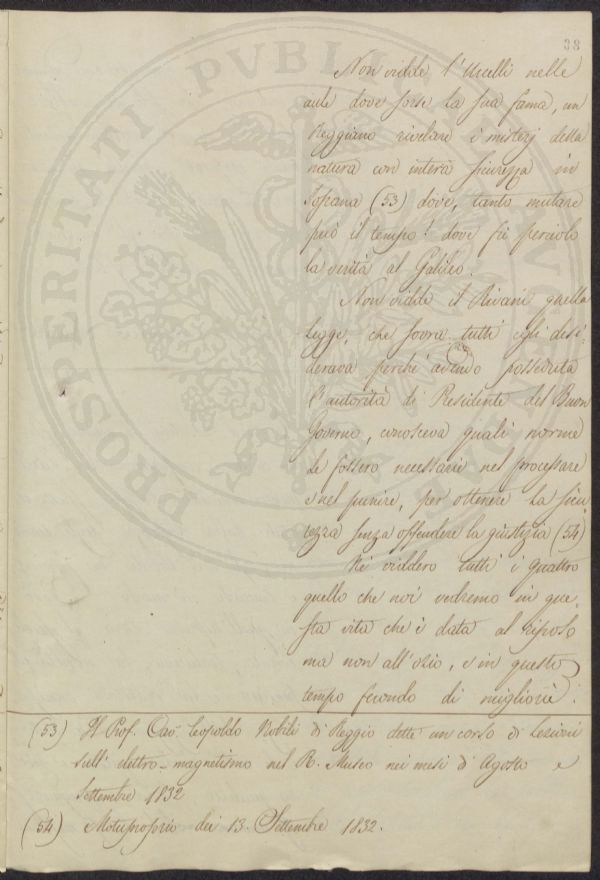 38
Non vidde l'Uccelli nelle
aule dove sorse la sua fama, un
Reggiano rivelare i misterj della
natura con intera sicurezza in
Toscana (53) dove, tanto mutare
può il tempo! dove fu pericolo
la verità al Galileo.
Non vidde il Rivani quella
legge, che sovra tutti egli desi-
derava perchè avendo posseduta
l'autorità di Presidente del Buon
Governo, conosceva quali norme
le fossero necessarie nel processare
e nel punire, per ottenere la sicu
rezza senza offendere la giustizia (54)
Nè viddero tutti i quattro
quello che noi vedremo in que-
sta vita che è data al riposo
ma non all'ozio, e in questo
tempo fecondo di migliorie.
(53) Il Prof. Cav. Leopoldo Nobili di Reggio dette un corso di Lezioni
sull'elettro-magnetismo nel R. Museo nei mesi di Agosto e
Settembre 1832
(54) Motuproprio dei 13. Settembre 1832.
PROSPERITATI PVBLICAE